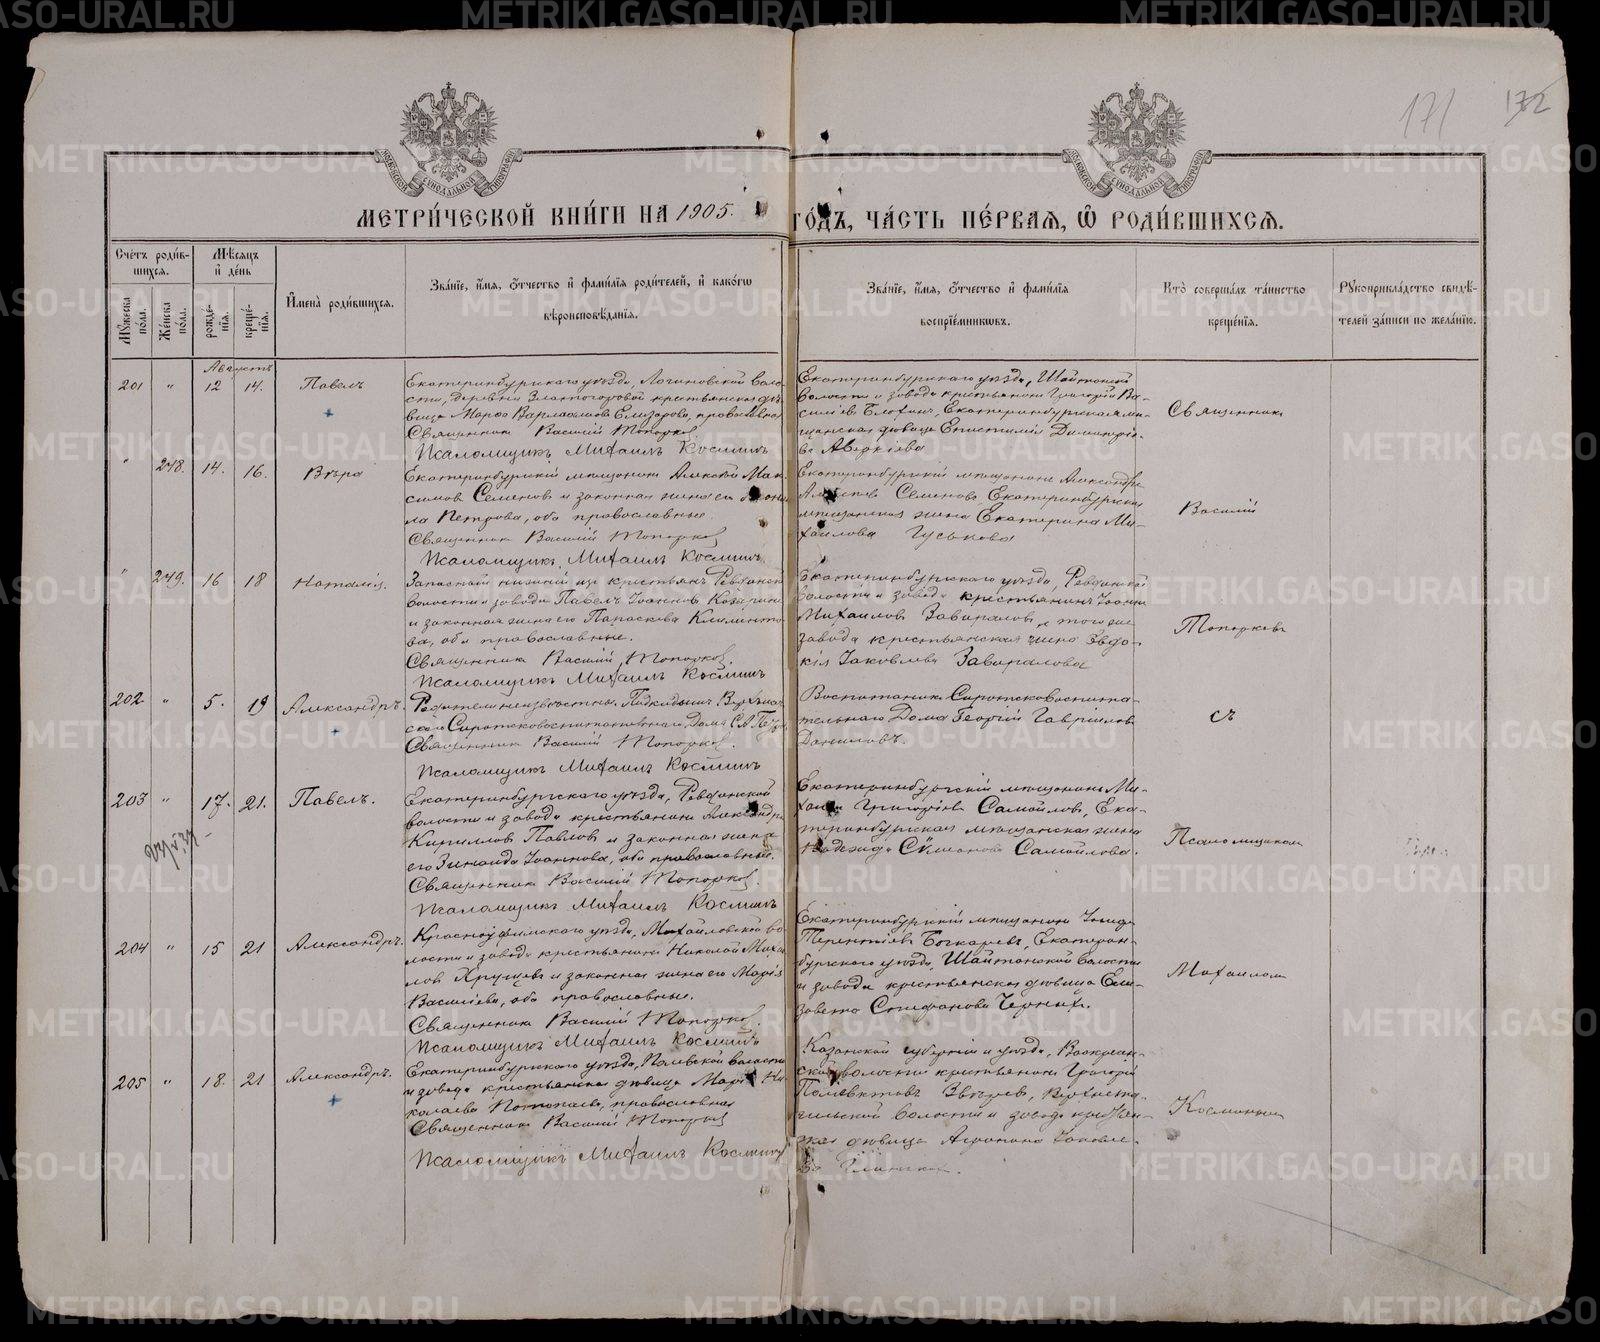 171 172
МОСКОВСКОЙ СѴНОДАЛЬНОЙ ТИПОГРАФІИ
МОСКОВСКОЙ СѴНОДАЛЬНОЙ ТИПОГРАФІИ
МЕТРИ́ЧЕСКОЙ КНИ́ГИ НА 1905. ГО́ДЪ, ЧА́СТЬ ПЕ́РВАЯ, Ѽ РОДИ́ВШИХСЯ.
Сче́тъ роди́в-
шихся.
Мꙋ́жеска по́ла.
Же́нска по́ла.
Мѣ́сяцъ
и҆ де́нь
рожде́-
нїя.
креще́-
нїя.
И҆мена̀ роди́вшихся.
Зва́нїе, и҆́мя, ѻ҆́тчество и҆ фами́лїя роди́телей, и҆ како́гѡ
вѣроисповѣ́данїя.
Зва́нїе, и҆́мя, ѻ҆́тчество и҆ фами́лїя
воспрїе́мникѡвъ.
Кто̀ соверша́лъ та́инство
креще́нїя.
Рꙋкоприкла́дство свидѣ́-
телей за́писи по жела́нїю.
Августъ
201 " 12 14. Павелъ
Екатеринбургскаго уѣзда, Логиновской воло-
сти, деревни Златогоровой крестьянская дѣ-
вица Марѳа Варлаамова Елизарова, православная
Священник Василій Топорков
Псаломщикъ Михаилъ Космин
Екатеринбургскаго уѣзда, Шайтанской
волости и завода крестьянин Григорій Ва-
сильев Блохин, Екатеринбургская мѣ-
щанская дѣвица Епистимія Димитріе-
ва Аверкіева
Священник
" 248. 14. 16. Вѣра
Екатеринбургскій мѣщанин Алексѣй Мак-
симов Семенов и законная жена его
ла Петрова, оба православные.
Священник Василій Топорков
Псаломщикъ Михаилъ Космин
Екатеринбургскій мѣщанин Александр
Алексѣев Семенов Екатеринбургская
мѣщанская жена Екатерина Ми-
хаилова Гуськова
Василій
" 249. 16 18 Наталія.
Запасной нижній из крестьян Ревдинской
волости и завода Павелъ Іоаннов Козырин
и законная жена его Параскева Климинто-
ва, оба православные.
Священник Василій Топорков.
Псаломщикъ Михаилъ Космин
Екатеринбургскаго уѣзда, Ревдинской
волости и завода крестьянин Іоанн
Михаилов Завиралов, того же
завода крестьянская жена Евдо-
кія Іаковлева Завиралова
Топорков
202 " 5. 19 Александръ.
Родители неизвѣстны. Подкидыш Верхъисет-
скаго Сиротсковоспитательнаго Дома
Священник Василій Топорков.
Псаломщикъ Михаилъ Космин
Воспитанник Сиротсковоспита-
тельнаго Дома Георгій Гавріилов
Даниловъ.
съ
203 " 17. 21. Павелъ.
Екатеринбургскаго уѣзда, Ревдинской
волости и завода крестьянин Александр
Кириллов Павлов и законная жена
его Зинаида Іоаннова, оба православные.
Священник Василій Топорков.
Псаломщикъ Михаилъ Космин
Екатеринбургскій мѣщанин Ми-
хаил Григорьев Самойлов, Ека-
теринбургская мѣщанская жена
Надежда Самойлова.
Псаломщиком
204 " 15 21 Александръ.
Красноуфимскаго уѣзда, Михайловской во-
лости и завода крестьянин Николай Михаи-
лов Хрущев и законная жена его Марія
Васильева, оба православные.
Священник Василій Топорков.
Псаломщикъ Михаилъ Космин
Екатеринбургскій мѣщанин
Терентіев Бочкаревъ, Екатерин-
бургскаго уѣзда, Шайтанской волости
и завода крестьянская дѣвица Ели-
завета Стефанова Черных.
Михаилом
205 " 18. 21 Александръ.
Екатеринбургскаго уѣзда, Полевской волости
и завода крестьянская дѣвица Марія Ни-
колаева Потопаева, православная
Священник Василій Топорков
Псаломщикъ Михаилъ Космин
Казанской губерніи и уѣзда, Воскресен-
ской волости крестьянин Григорій
Полиевктов Звѣрев, Верхнета-
гильской волости и завода крестьян-
ская дѣвица Агрипина Іаковле-
ва
Косминым
METRIKI.GASO-URAL.RU